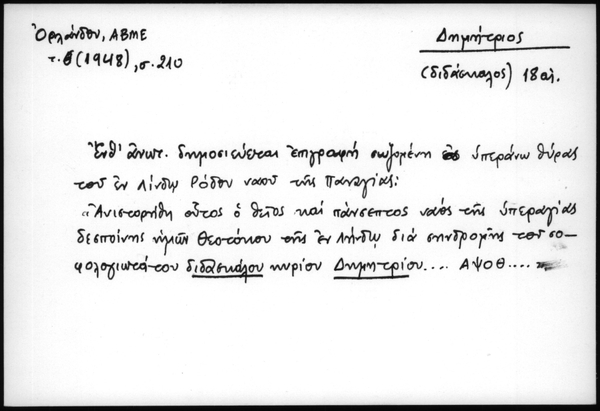 Ὀρλάνδου, ΑΒΜΕ
τ. 6 (1948), σ. 210
Δημήτριος
(διδάσκαλος) 18 αἰ.
Ἔνθ' ἀνωτ. δημοσιεύεται ἐπιγραφή σωζομένη ὑπεράνω θύρας
τοῦ ἐν Λίνδῳ Ρόδου ναοῦ τῆς Παναγίας:
"Ἀνιστορήθη οὗτος ὁ θεῖος καί πάνσεπτος ναός τῆς ὑπεραγίας
δεσποίνης ἡμῶν Θεοτόκου τῆς ἐν Λήνδῳ διά σηνδρομῆς τοῦ σο-
φολογιωτάτου διδασκάλου κυρίου Δημητρίου.... ΑΨΟΘ....